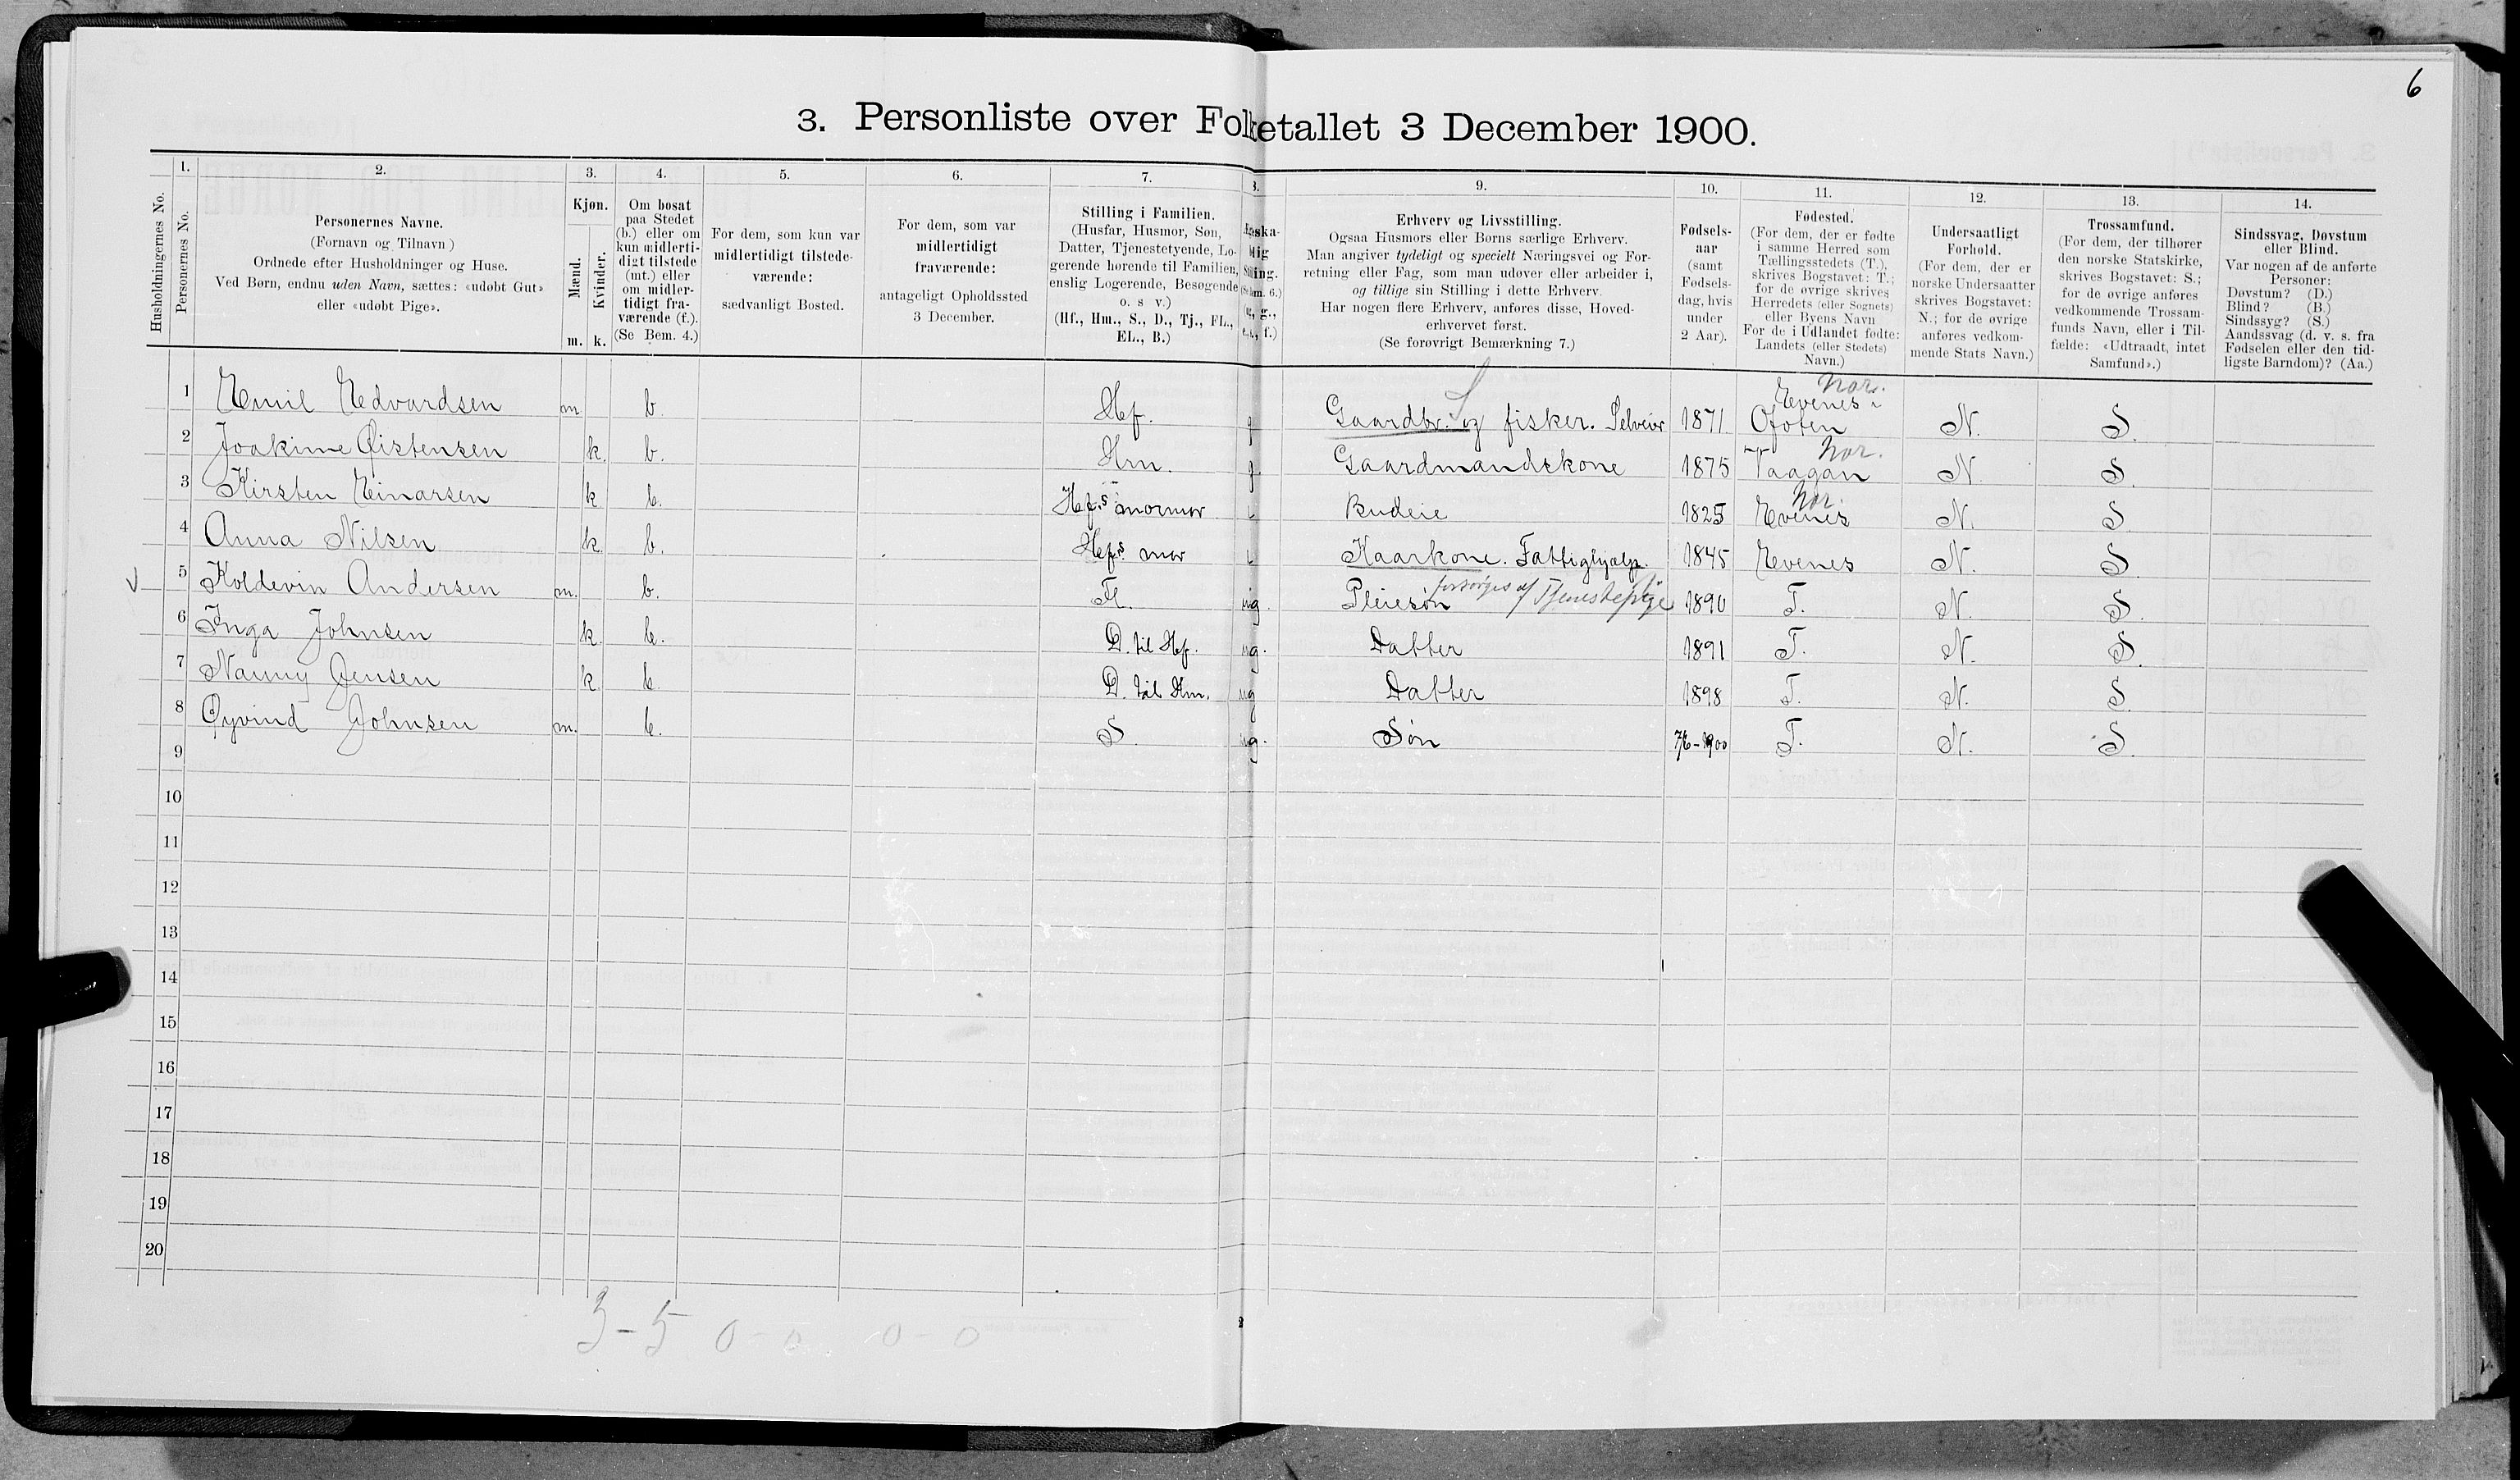 6
3. Personliste over Folketallet 3 December 1900.
Husholdningernes No.
1.
Personernes No.
2.
Personernes Navne.
(Fornavn og Tilnavn)
Ordnede efter Husholdninger og Huse.
Ved Børn, endnu uden Navn, sættes: «udøbt Gut»
eller «udøbt Pige».
3.
Kjøn.
Mænd.
Kvinder.
m. k.
4.
Om bosat
paa Stedet
(b.) eller om
kun midlerti-
digt tilstede
(mt.) eller
om midler-
tidigt fra-
værende (f.).
(Se Bem. 4.)
5.
For dem, som kun var
midlertidigt tilstede-
værende:
sædvanligt Bosted.
6.
For dem, som var
midlertidigt
fraværende:
antageligt Opholdssted
3 December.
7.
Stilling i Familien.
(Husfar, Husmor, Søn,
Datter, Tjenestetyende, Lo-
gerende hørende til Familien,
enslig Logerende, Besøgende
o. s v.)
(Hf., Hm., S., D., Tj., FL.,
EL., B.)
9.
Erhverv og Livsstilling.
Ogsaa Husmors eller Børns særlige Erhverv.
Man angiver tydeligt og specielt Næringsvei og For-
retning eller Fag, som man udøver eller arbeider i,
og tillige sin Stilling i dette Erhverv.
Har nogen flere Erhverv, anføres disse, Hoved-
erhvervet først.
(Se forøvrigt Bemærkning 7.)
10.
Fødsels-
aar
(samt
Fødsels-
dag, hvis
under
2 Aar).
11.
Fødested.
(For dem, der er fødte
i samme Herred som
Tællingsstedets (T.),
skrives Bogstavet: T.;
for de øvrige skrives
Herredets (eller Sognets)
eller Byens Navn
For de i Udlandet fødte:
Landets (eller Stedets)
Navn.)
12.
Undersaatligt
Forhold.
(For dem, der er
norske Undersaatter
skrives Bogstavet:
N.; for de øvrige
anføres vedkom-
mende Stats Navn.)
13.
Trossamfund.
(For dem, der tilhører
den norske Statskirke,
skrives Bogstavet: S.;
for de øvrige anføres
vedkommende Trossam-
funds Navn, eller i Til-
fælde: «Udtraadt, intet
Samfund».)
14.
Sindssvag, Døvstum
eller Blind.
Var nogen af de anførte
Personer:
Døvstum? (D.)
Blind? (B.)
Sindssyg? (S.)
Aandssvag (d. v. s. fra
Fødselen eller den tid-
ligste Barndom)? (Aa.)
1 Emil Edvardsen m b. Hf. g Gaardbr. og fisker. Selveier 1871 Nor. Evenes i Ofoten N. S.
2 Joakime Øistensen k. b. Hm. g Gaardmandskone 1875 Nor. Vaagan N. S.
3 Kirsten Einarsen k b. Hf.s mormor Budeie 1825 Nor. Evenes N. S
4 Anna Nilsen k. b. Hf.s mor Kaarkone. Fattighjælp. 1845 Evenes N. S.
5 Koldevin Andersen m. b. Fl. ug. Pleiesøn forsørges af Tjenestepige 1890 T. N. S.
6 Inga Johnsen k. b. D. til Hf. ug. Datter 1891 T. N. S.
7 Nanny Jensen k. b. D. til Hm. ug Datter 1898 T. N. S.
8 Øyvind Johnsen m. b. S. ug. Søn 7/6-1900 T. N. S.
9
10
11
12
13
14
15
16
17
18
19
20
3-5 0-0 0-0